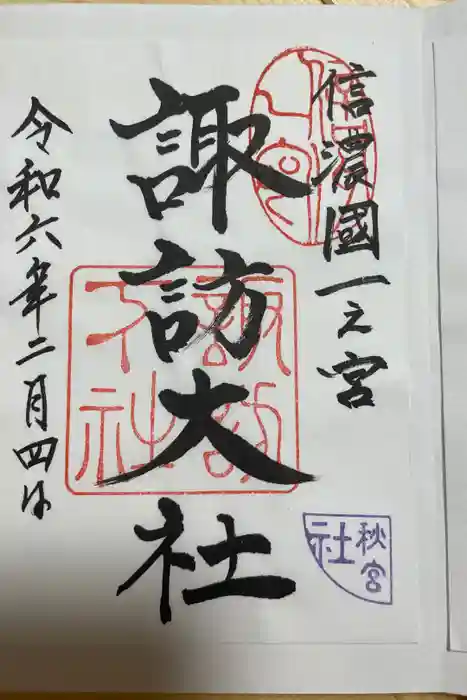 信濃國一之宮
諏訪大社
令和六年二月四日
諏訪
下社
秋宮
社